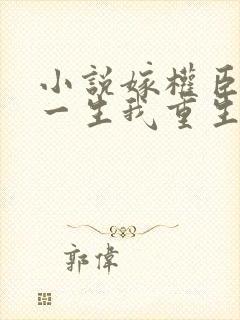 小說嫁權臣
一生我重生
郭偉